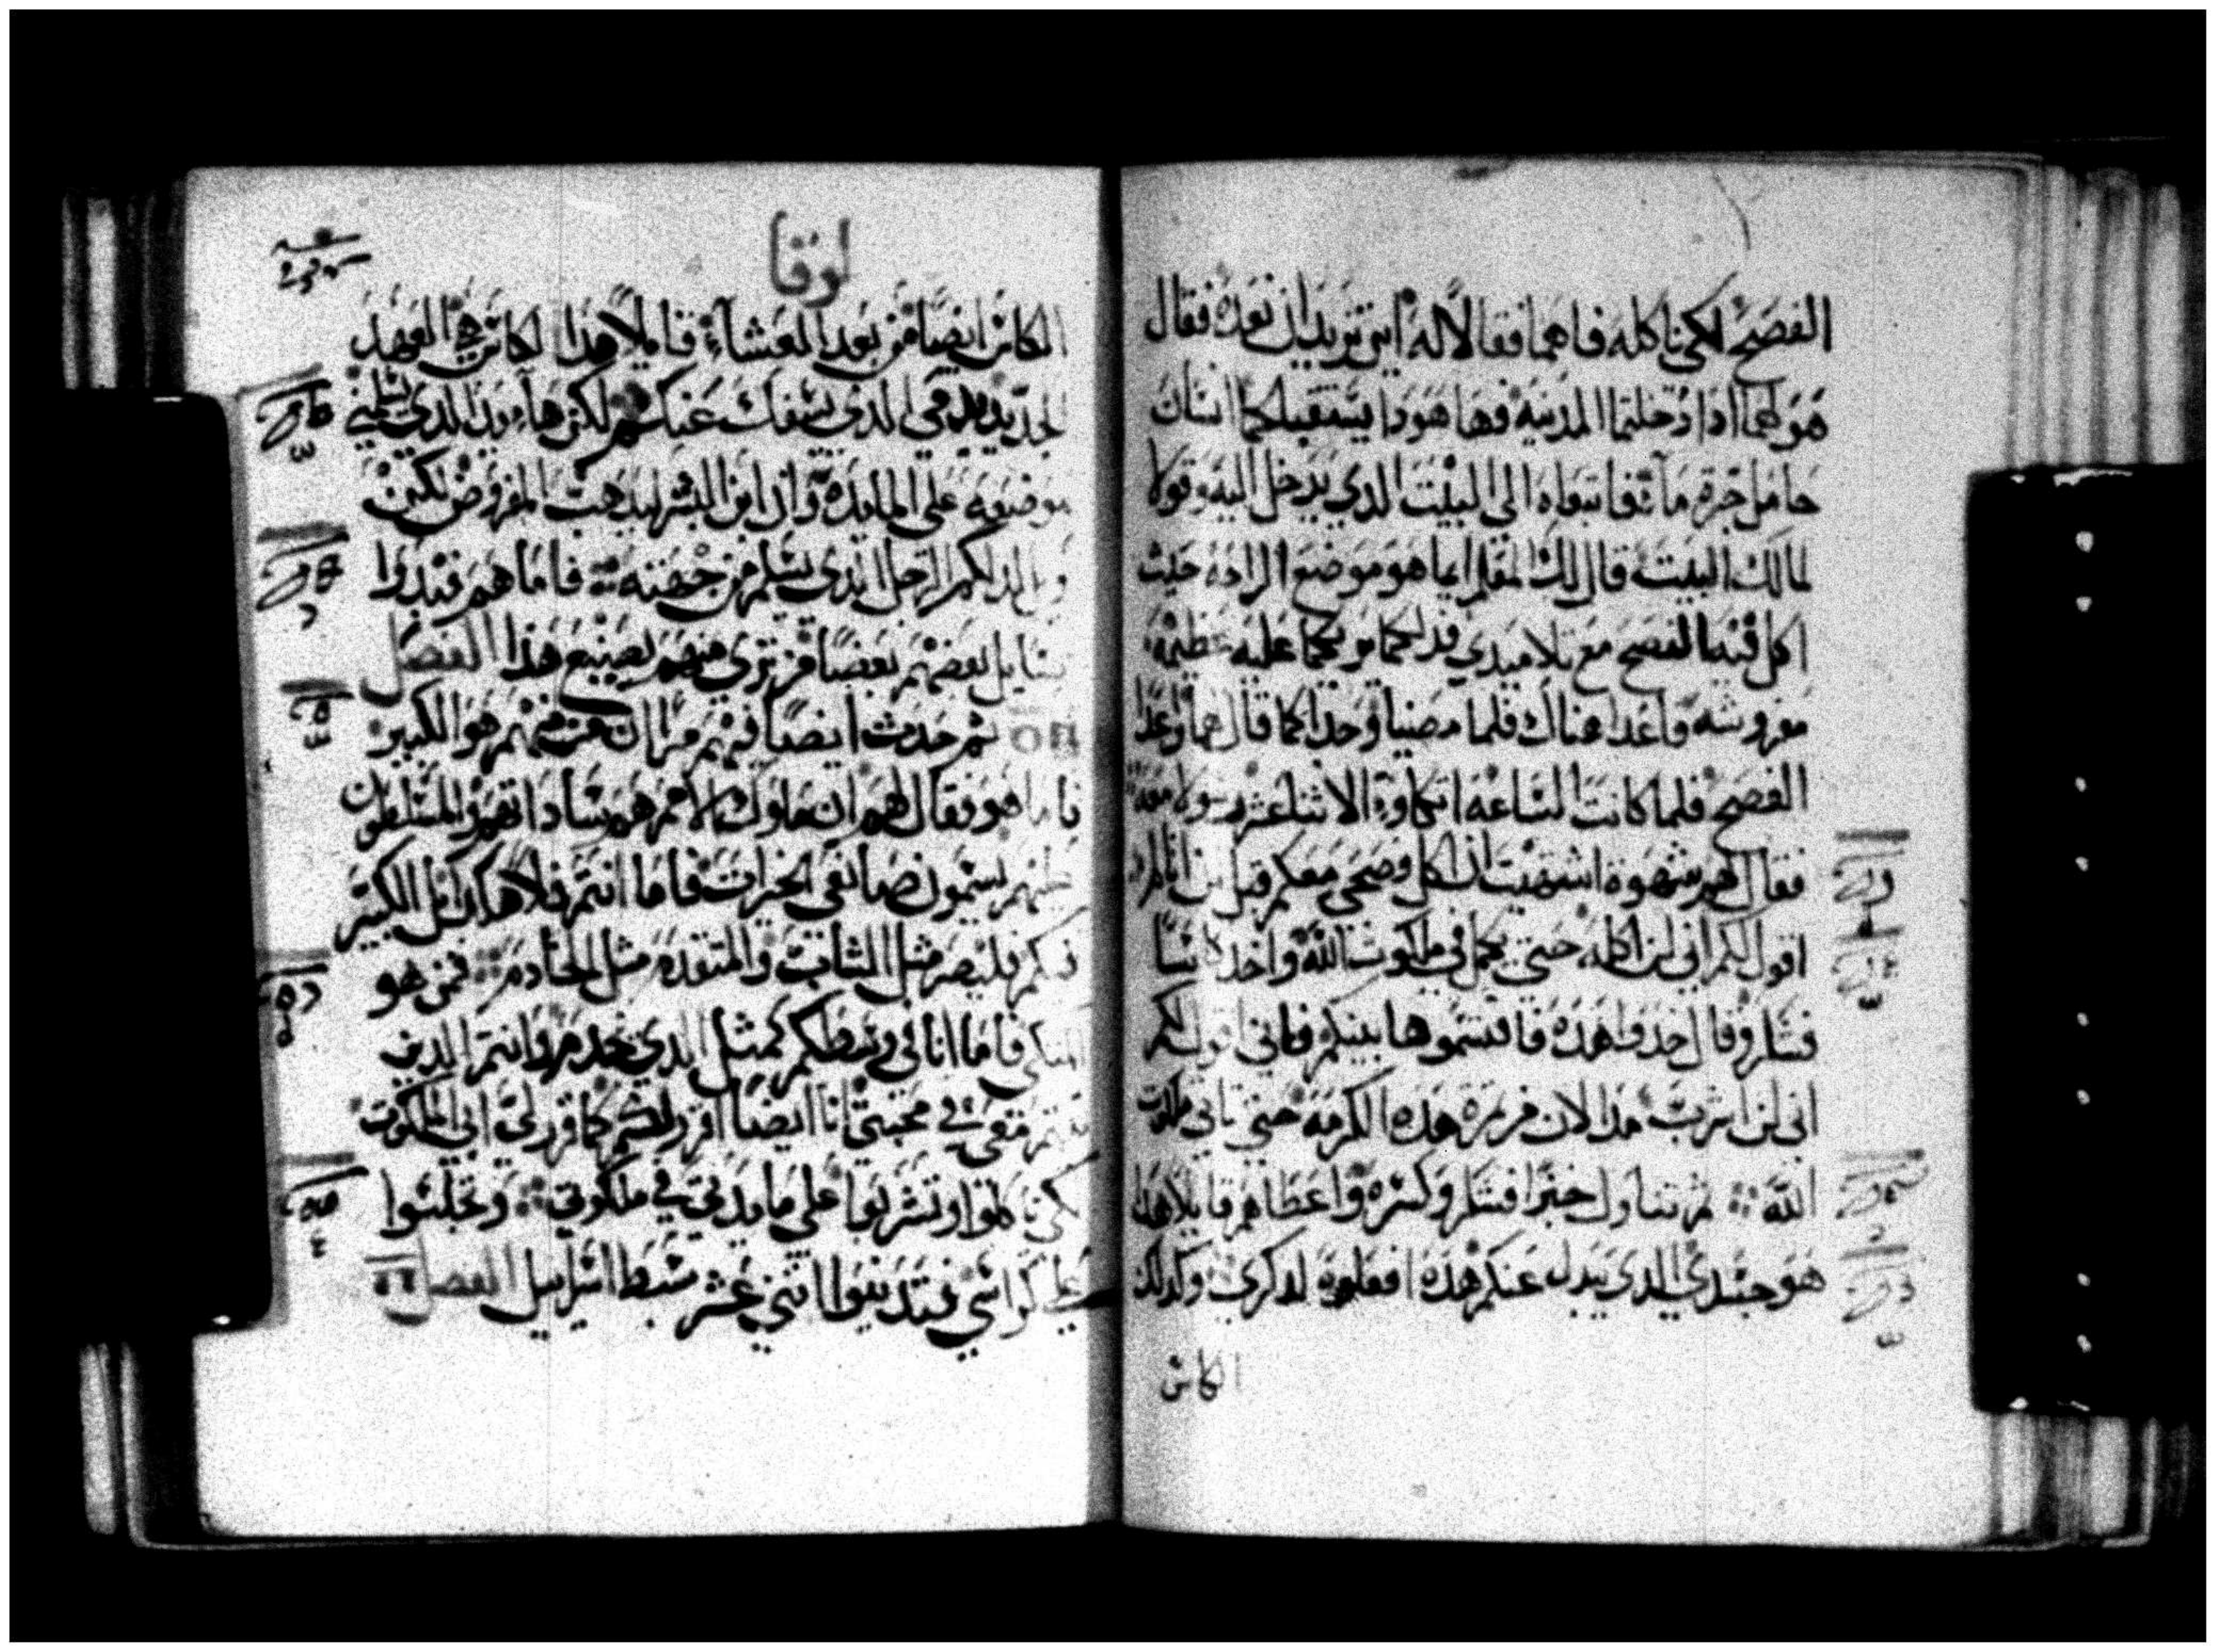 الفصح لكي ناكله فاهما فقالا له اين تريد ان نعده فقال
هو لهما ادا دخلتما المدينه فها هودا يستقبلكما انسان
حامل جرة مآء فاتبعاه الي البيت الدي يدخل اليه وقولا
لمالك البيت قال لك المعلم ايما هو موضع الراحه حيث
اكل فيه الفصح مع تلاميدي فدلكما يريكما عليه عظيمه
مفروشه واعدا هناك فلما مضيا وجدا كما قال لهما واعدا
الفصح فلما كانت الساعه اتكا والاثناعشر رسولا معه
فقال لهم شهوة اشتهيت ان اكل فصحي معكم قبل ان اتالم
اقول لكم اني لن اكله حتي يكمل في ملكوت الله واخد كاسا
فشكر وقال خدوا هده فاقتسموها بينكم فاني اقول لكم
اني لن اشرب مند الان من تمرة هده الكرمه حتي ياتي ملكوت
الله ثم تناول خبزا فشكر وكسره واعطاهم قايلا هدا
هو جسدي الدي يبدل عنكم هده افعلوه لدكري وكدلك
الكاس
لوقا
الكاس ايضا من بعد العشآء قايلا هدا الكاس هي العهد
الجديد بدمي الدي يسفك عنكم لكن هآ يد الدي يسلمني
موضوعه علي المايده وان ابن البشر يدهب كالمفروض لكن
الرجل الدي يسلم من جهته فاما هم فبدوا
يتسايل بعضهم بعضا من تري منهم يصنع هدا الفصل
ثم حدث ايضا فيهم مرآ ان من منهم هو الكبير
فاما هو فقال لهم ان ملوك الامم هم ساداتهم والمتسلطون
عليهم يسمون صانعي الخيرات فاما انتم فلا هكدا بل الكبير
فيكم فليصر مثل الشاب والمتقدم مثل الخادم فمن هو
المتكي فاما انا في وسطكم كمثل الدي يخدم وانتم الدين
معي في محبتي انا ايضا اقرر لكم كما قرر لي ابي الملكوت
لكي تاكلوا وتشربوا علي مايدتي في ملكوتي وتجلسوا
علي كراسي فتدينوا اثني عشر سبط اسراييل الفصل